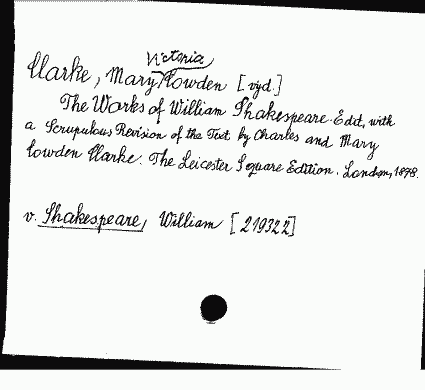 Victoria
Clarke, Mary Cowden [vyd.]
The Works of William Shakespeare. Edit, with
a Scrupulous Revision of the Text by Charles and Mary
Cowden Clarke. The Leicester Square Edition. London, 1878.
v. Shakespeare, William [21932 2]